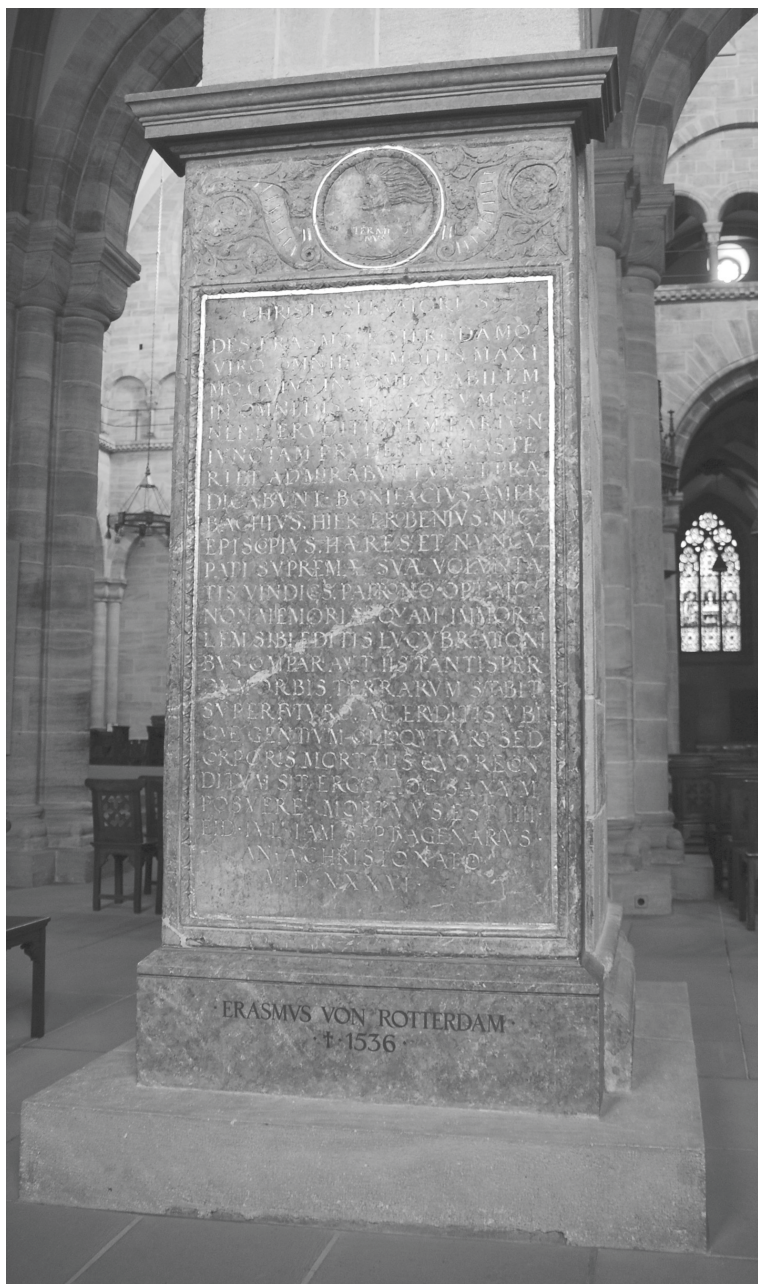 TERMI
NVS
CHRISTO SERVATORI S
DES ERASMO ROTERODAMO
VIRO OMNIBVS MODIS MAXI
MO CVIVS INCOMPARABILEM
IN OMNI DISCIPLINARVM GE
NERE ERVDITIONEM PARI CON
IVNCTAM PRVDENTIA POSTE
RI ET ADMIRABVNTVR ET PRÆ
DICABVNT BONIFACIVS AMER
BACHIVS. HIER. FROBENIVS. NIC.
EPISCOPIVS. HÆRES. ET NVNCV
PATI SVPREMÆ SVÆ VOLVNTA
TIS VINDICES PATRONO OPTIMO
NON MEMORIÆ QVAM IMMORTA
LEM SIBI EDITIS LVCVBRATIONI
BVS COMPARAVIT IIS TANTISPER
DVM ORBIS TERRARVM STABIT
SVPERFVTVRO AC ERVDITIS VBI
QVE GENTIVM COLLOQVVTVRO SED
CORPORIS MORTALIS QVO RECON
DITVM SIT ERGO HOC SAXVM
POSVERE MORTVVS EST IIII
EID. IVL. IAM SEPTVAGENARIVS
AN. A CHRISTO NATO
M. D. XXXVI.
·ERASMVS VON ROTTERDAM·
·†·1536·